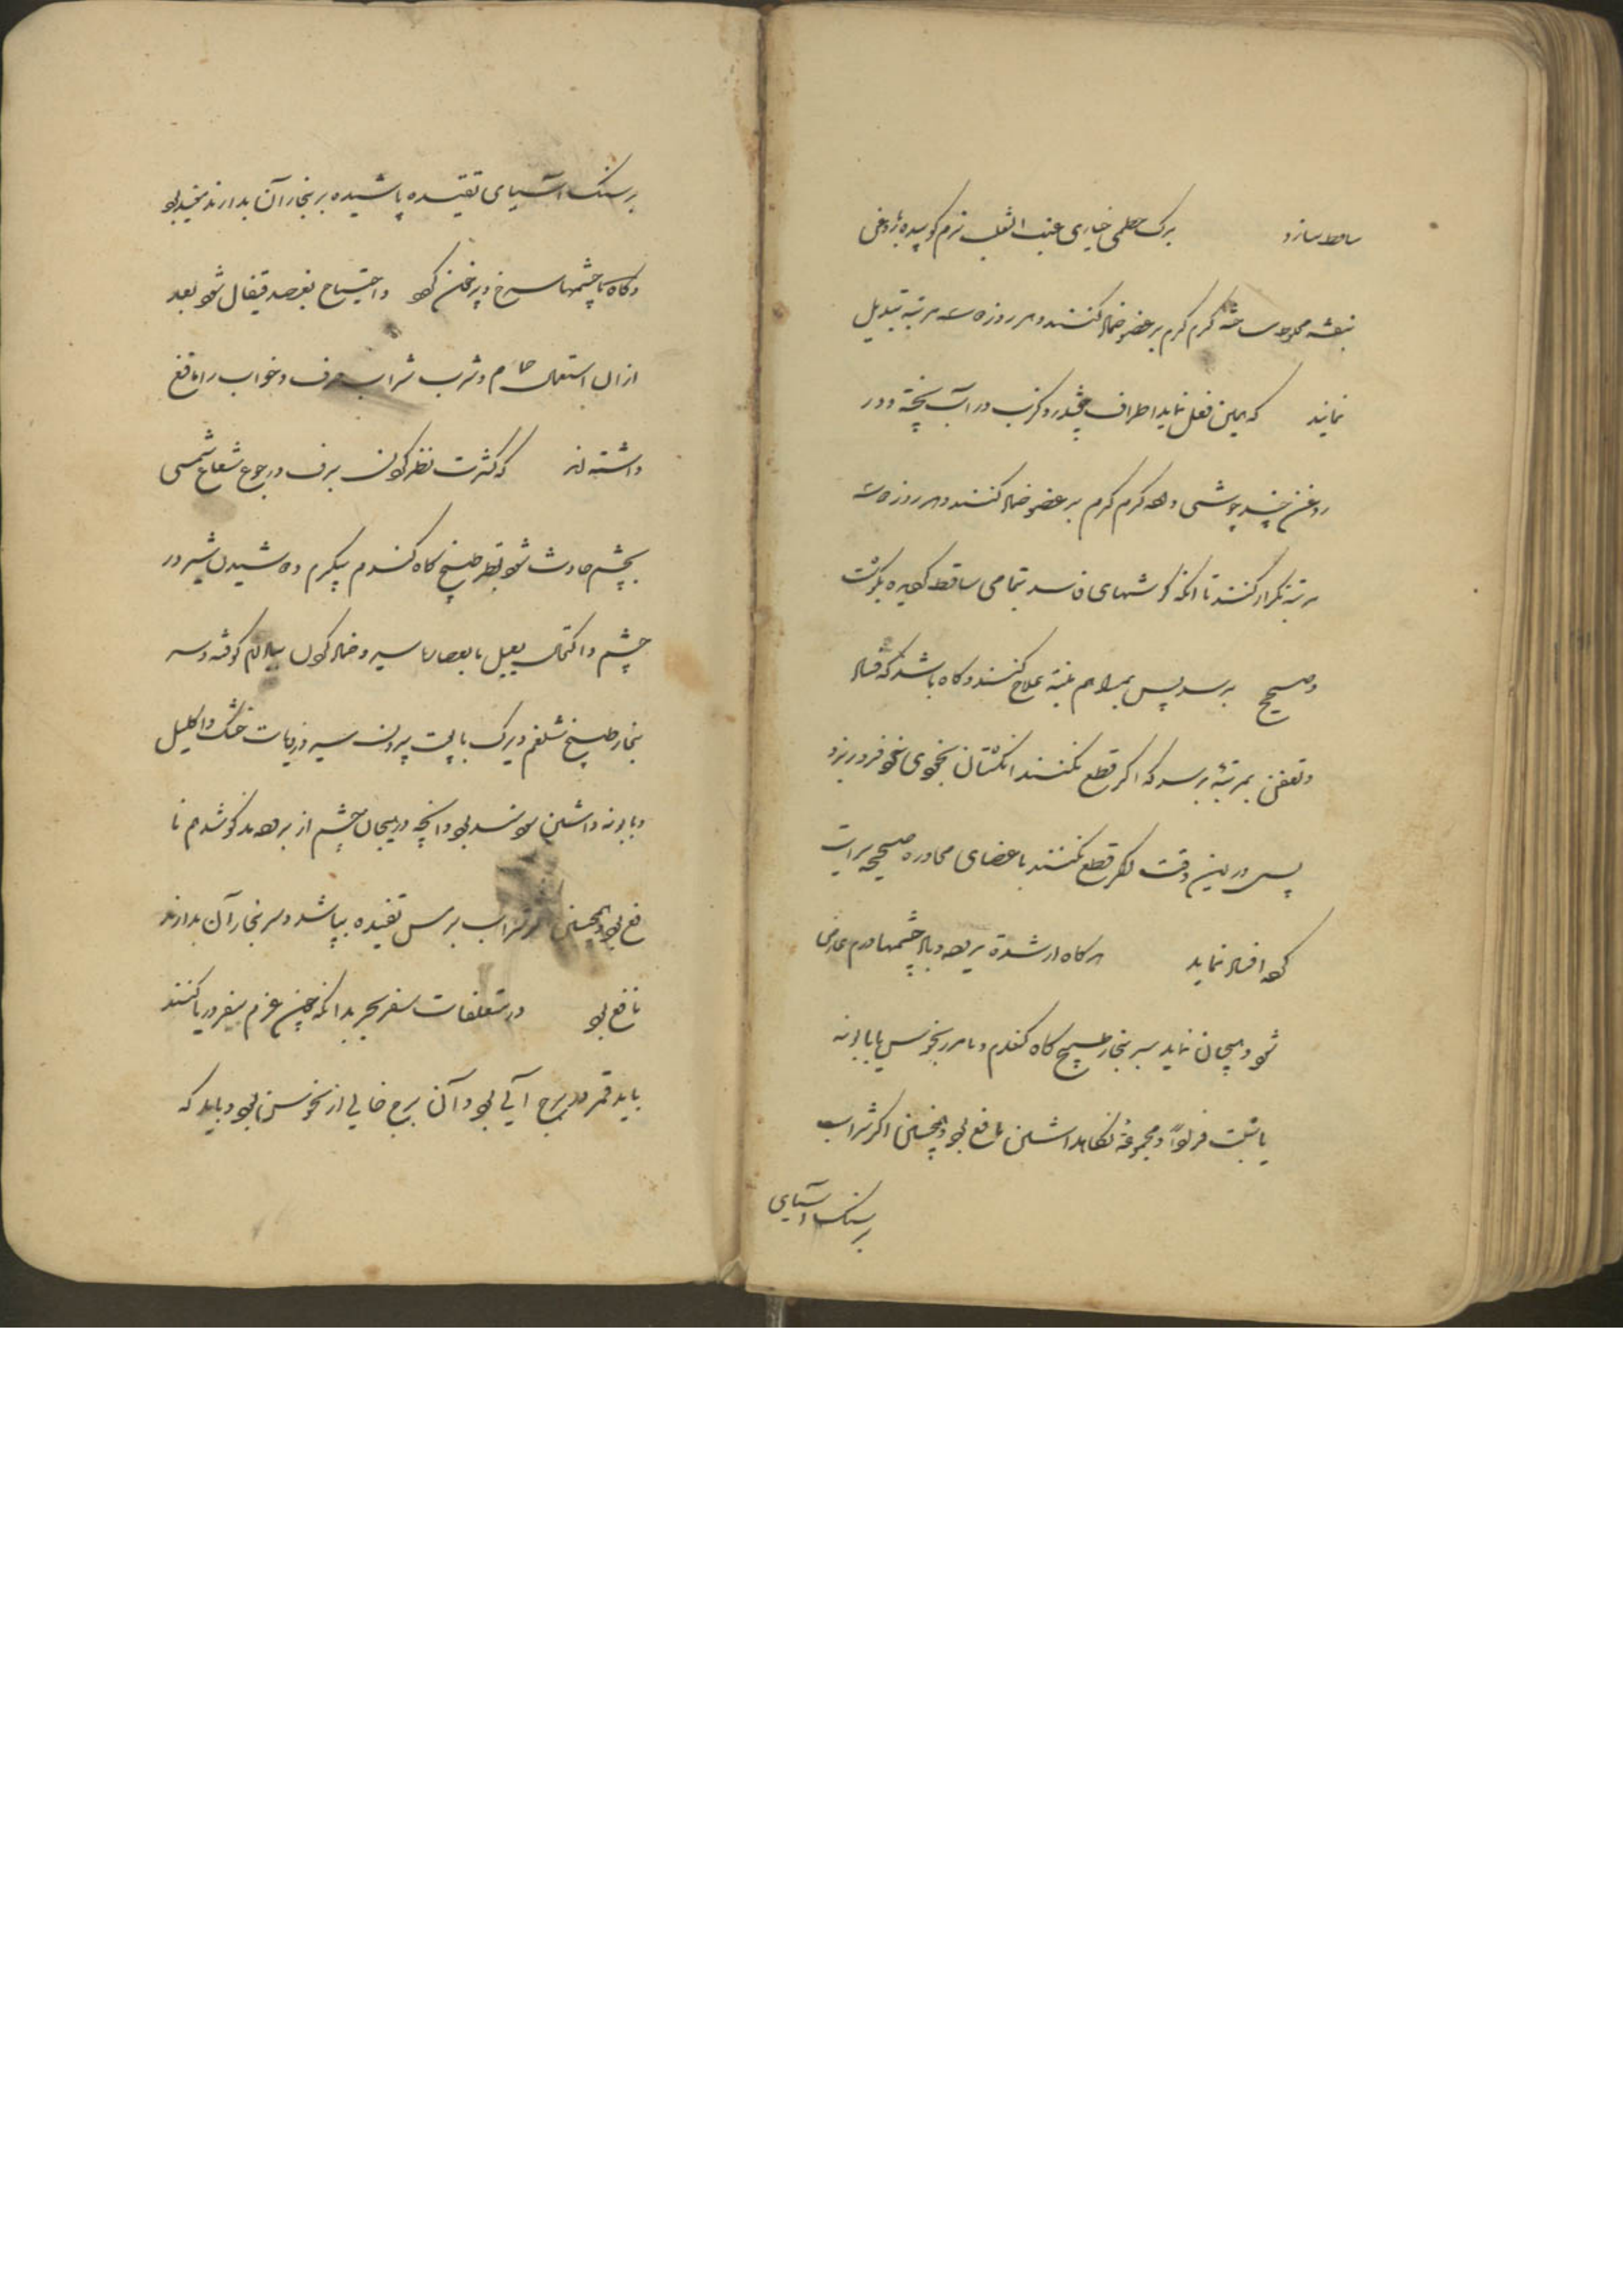 ساقط سازد برک خطمی خبازی عنب الثعلب نرم کوبیده بروغن
بنفشه مخلوط ساخته گرم گرم بر عضو ضماد کنند و هر روزه سه مرتبه تبدیل
نمایند که همین فعل نماید اطراف چغندر و کرنب در آب پخته و در
روغن چند جوشی داده گرم گرم بر عضو ضماد کنند و هر روزه سه
مرتبه تکرار کنند تا انکه گوشتهای فاسد بتمامی ساقط بگوشت
صحیح برسد پس بمراهم علاج کنند و گاه باشد که فساد
و تعفن بمرتبه برسد که اگر قطع نکنند انگشتان بخودی خود فرو ریزد
پس درین وقت اگر قطع نکنند باعضای مجاوره صحیحه سرایت
کرده افساد نماید هرگاه از شدة برد و باد چشمها ورم عارض
شود و هیجان نماید سر بخار طبیخ کاه گندم و یا مرزنجوش یا بابونه
یا شبت و مجموعه نگاهداشتن نافع بود و همچنین اگر شراب
بر سنک آسیای
بر سنک آسیای تفتیده پاشیده بر بخار آن بدارند مفید بود
و گاه چشمها سرخ و پرخون گردد و احتیاج بفصد قیفال شود بعد
ازان استعمال حمام و شرب شراب صرف و خواب را نافع
داشته اند که کثرت نظر کردن ببرف و رجوع شعاع شمسی
بچشم حادث شود طبیخ کاه گندم نیکرم دوشیدن شیر در
چشم و اکتحال سیر و ضماد کردن بادام کوفته و سر
بخار طبیخ شلغم و برک پوست بیرون سیر و زوفای خشک و اکلیل
و بابونه داشتن سودمند بود و آنچه در هیجان چشم از برد مذکور شد هم نا
فع بود و همچنین اگر شراب بر مس تفتیده بپاشد و سر بخار آن بدارند
نافع بود در متعلقات سفر بحر بدانکه چون عزم سفر دریا کنند
باید قمر در برج آبی بود و آن برج خالی از نحوس بود و باید که